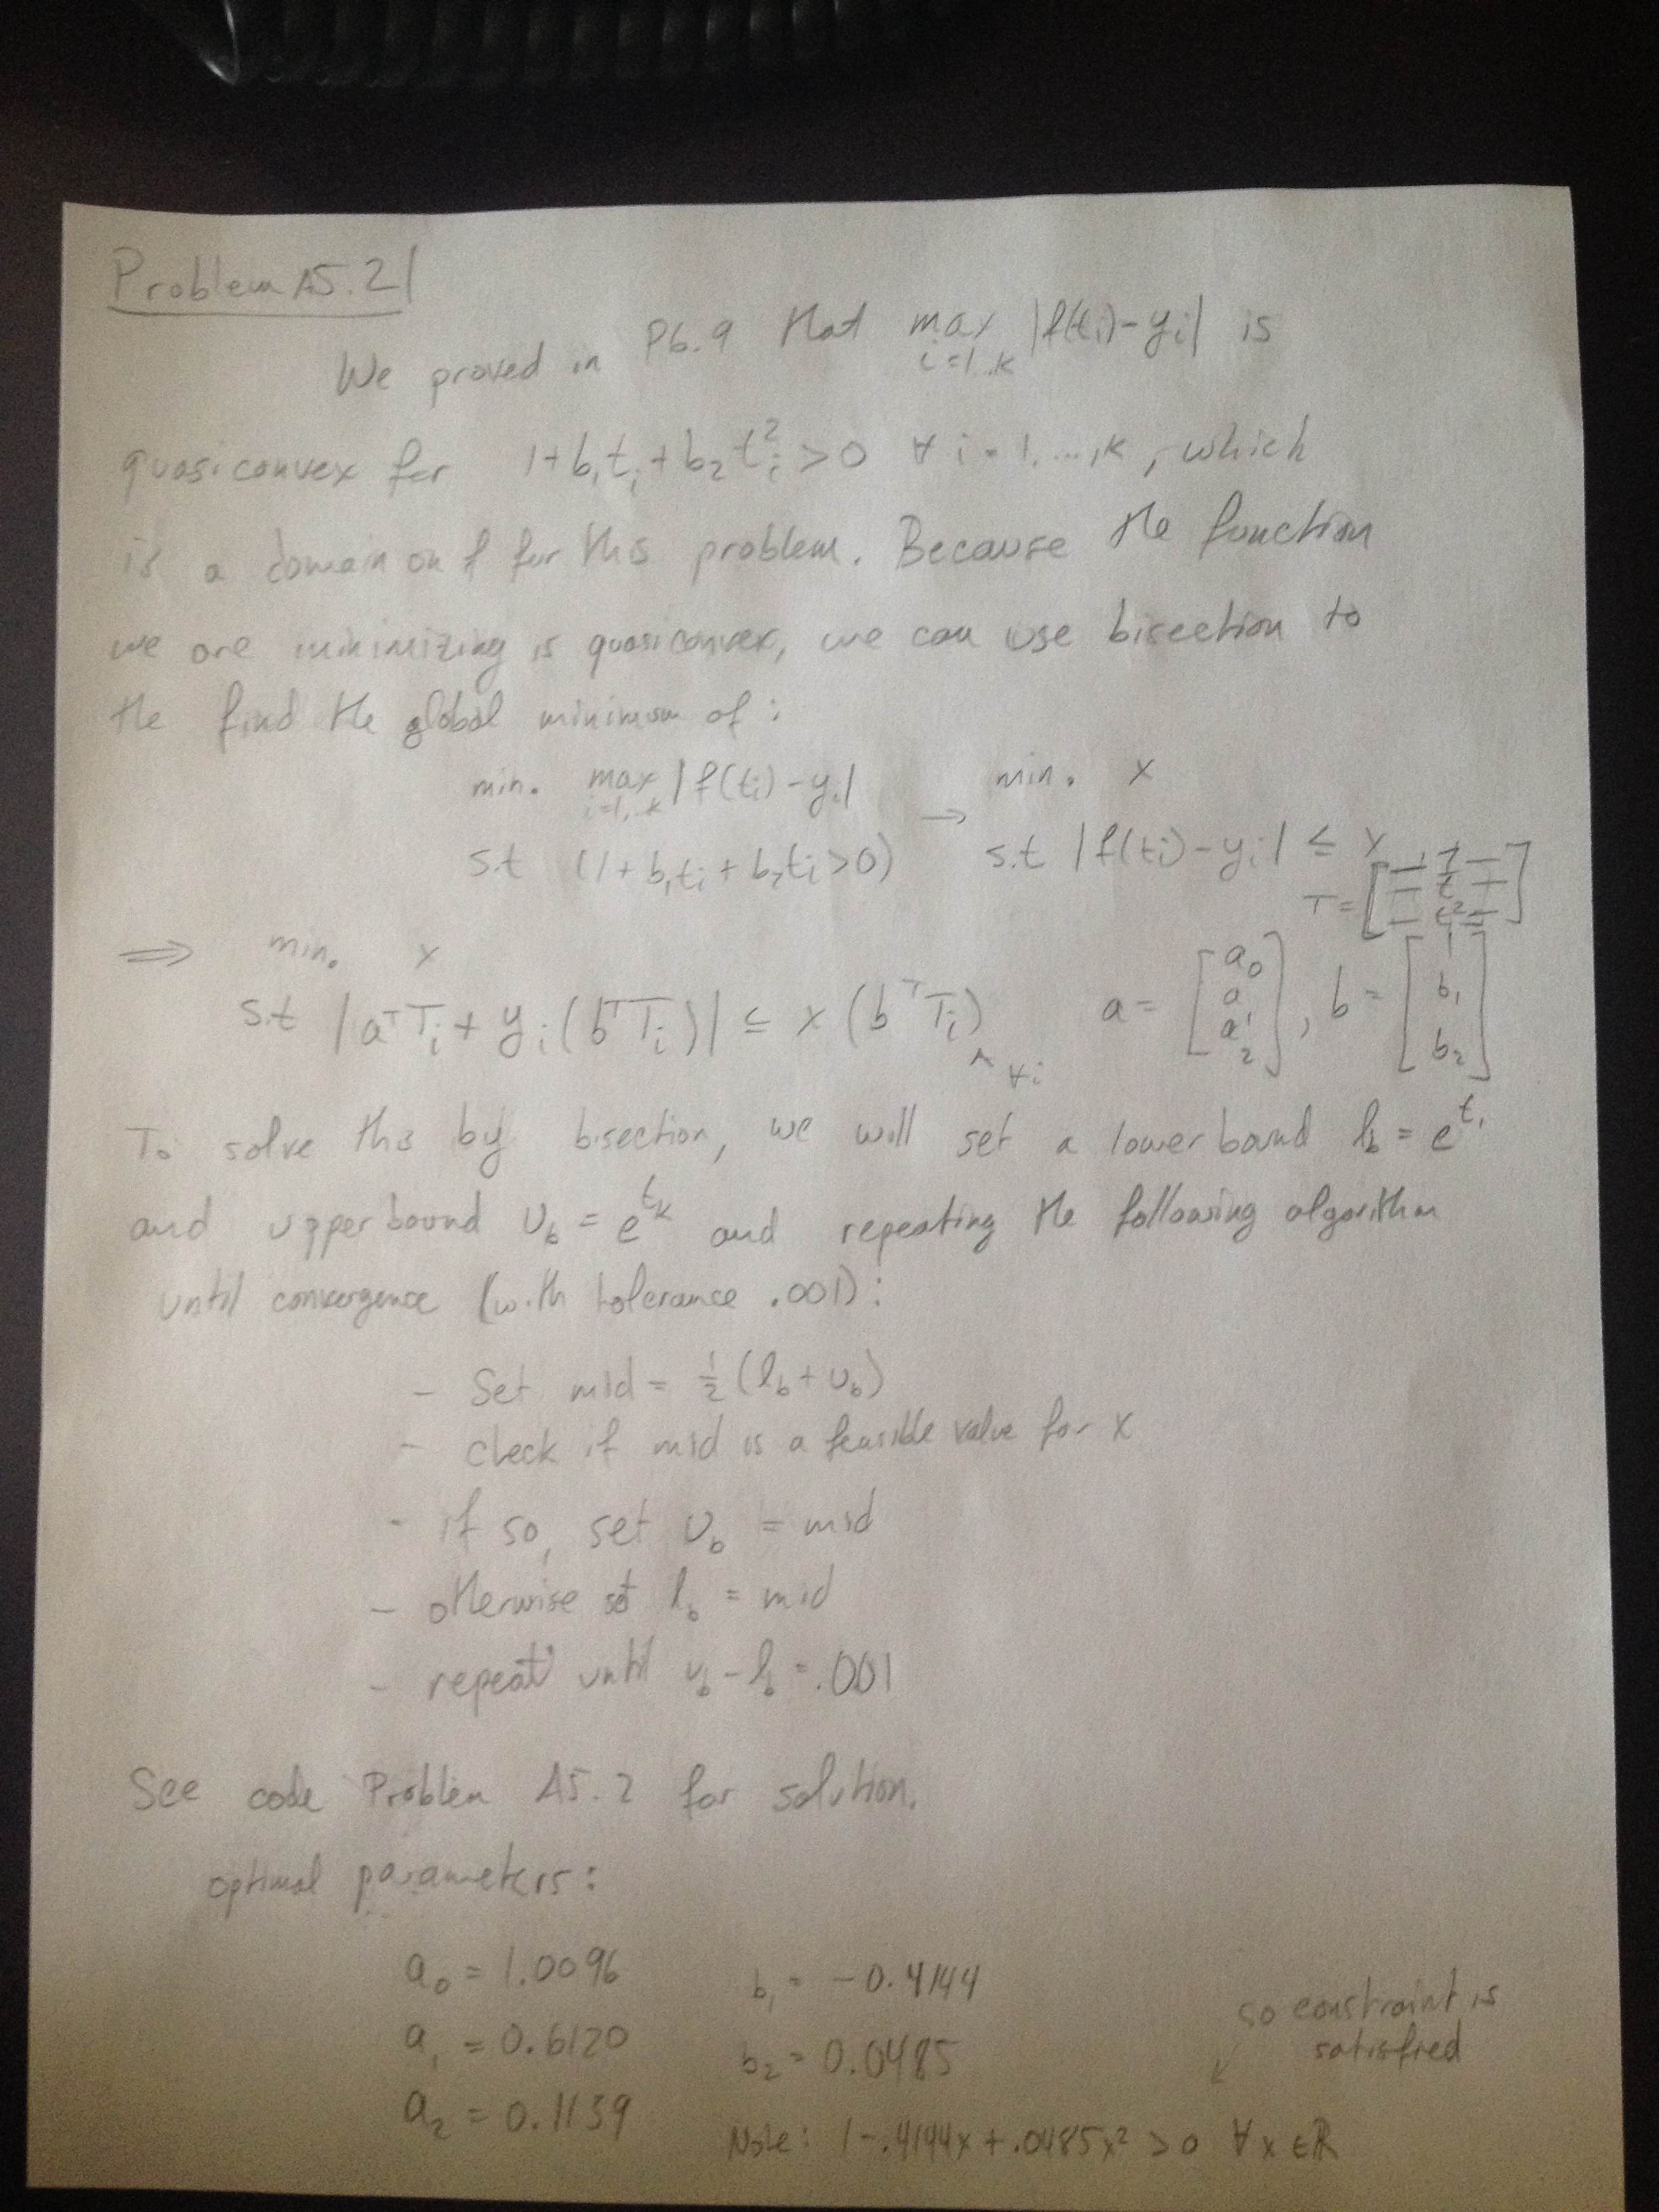 Problem A5.2
We proved in P6.9 that max i=1..k |f(ti)-yi| is
quasiconvex for 1+b₁tᵢ+b₂tᵢ²>0 ∀ i=1,...,k, which
is a domain on f for this problem. Because the function
we are minimizing is quasiconvex, we can use bisection to
the find the global minimum of:
min. max i=1,..k |f(tᵢ)-yᵢ| → min. x
s.t (1+b₁tᵢ+b₂tᵢ>0) s.t |f(tᵢ)-yᵢ| ≤ x
T = [— 1 — — t — — t² —]
⇒ min. x
s.t |aᵀTᵢ + yᵢ(bᵀTᵢ)| ≤ x (bᵀTᵢ) ^ ∀i a = [a₀ a₁ a₂], b = [1 b₁ b₂]
To solve this by bisection, we will set a lower bound l_b = e^t₁
and upper bound U_b = e^t_k and repeating the following algorithm
until convergence (with tolerance .001):
- Set mid = ½(l_b+U_b)
- check if mid is a feasible value for x
- if so, set U_b = mid
- otherwise set l_b = mid
- repeat until U_b - l_b = .001
See code Problem A5.2 for solution.
optimal parameters:
a₀ = 1.0096 b₁ = -0.4144
a₁ = 0.6120 b₂ = 0.0485
a₂ = 0.1139
so constraint is
satisfied
↙
Note: 1-.4144x+.0485x²>0 ∀ x ∈ ℝ